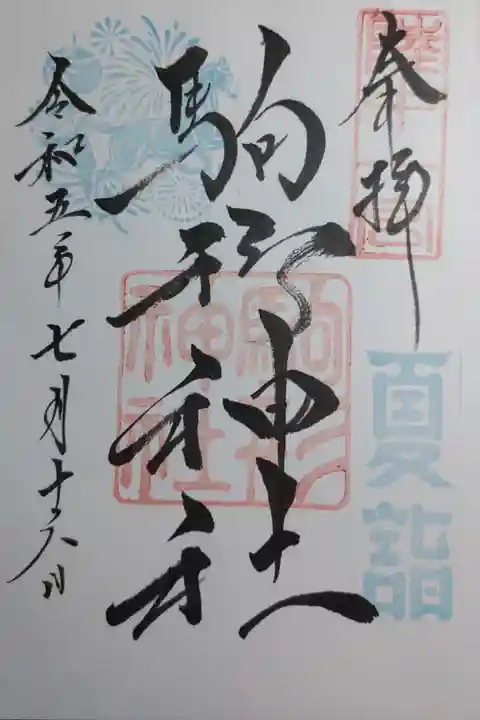 奉拝
陸中国
夏詣
駒形神社
駒形神社
令和五年七月十六日